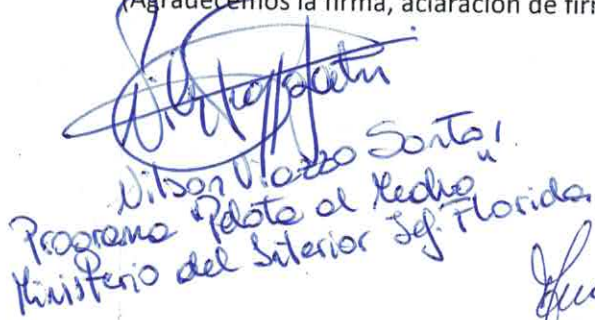 (Agradecemos la firma, aclaración de fir
Nilson Viazzo Santos
Programa "Pelota al Medio"
Ministerio del Interior Jef. Florida